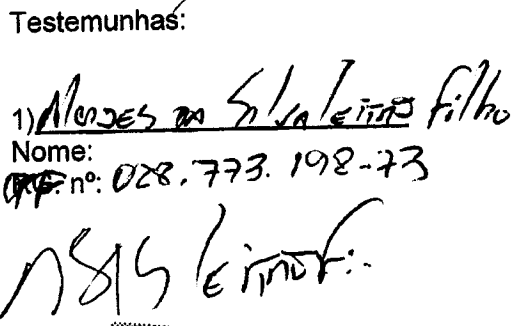 Testemunhas:
1) da Silva Leitão Filho
Nome:
CPF. nº: 028.773.198-73